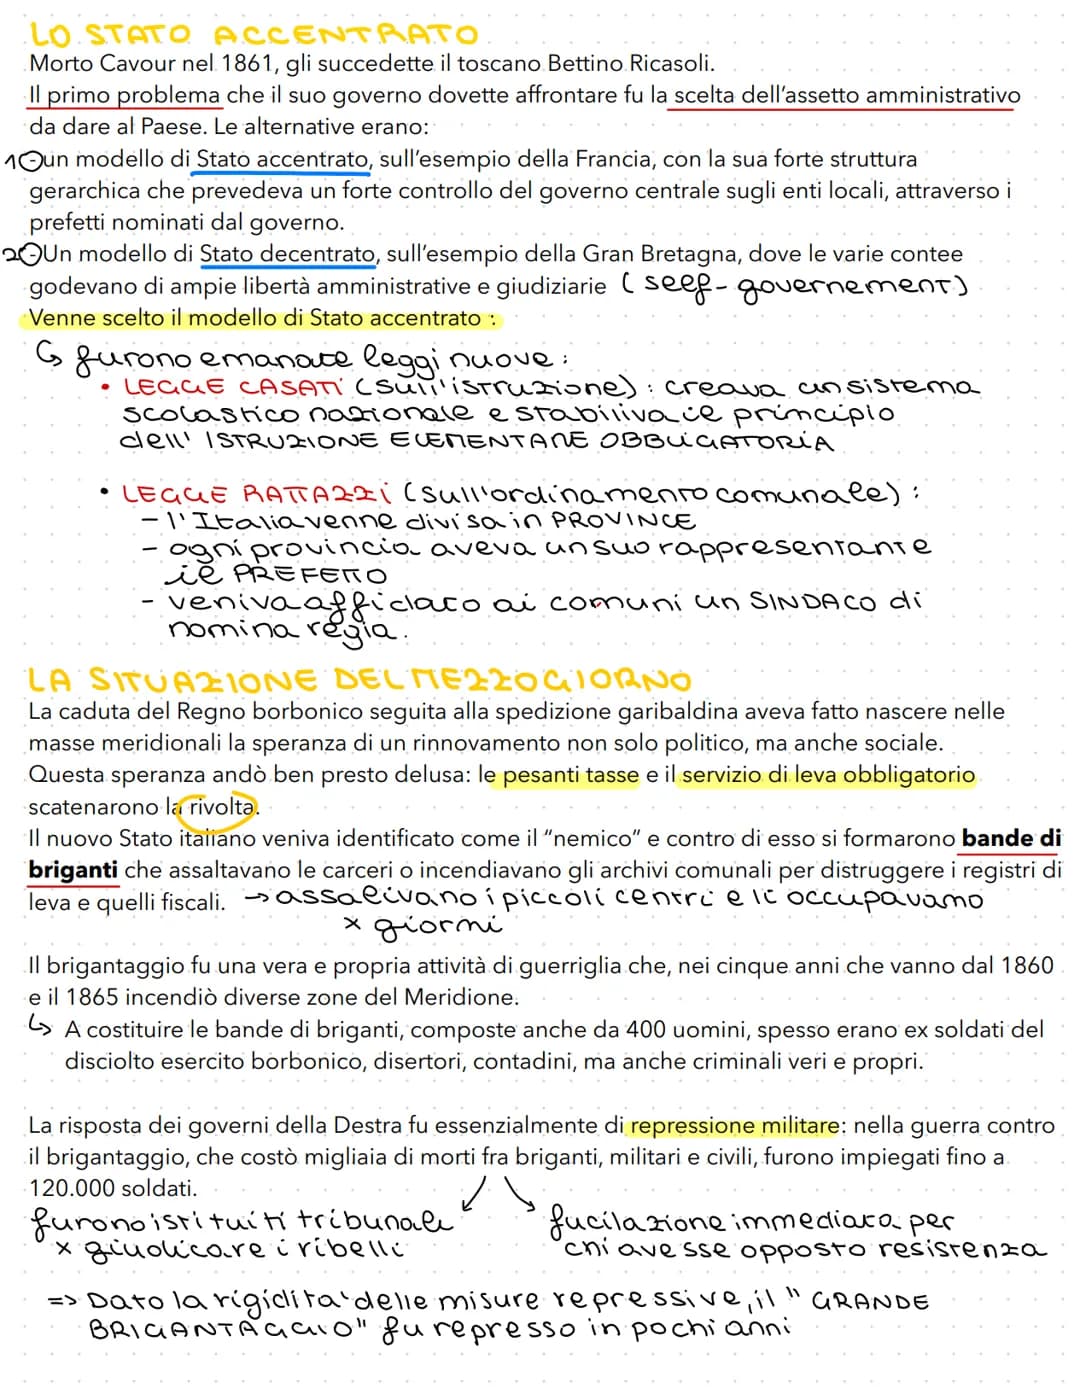 LO STATO ACCENTRATO
Morto Cavour nel 1861, gli succedette il toscano Bettino Ricasoli.
Il primo problema che il suo governo dovette affrontare fu la scelta dell'assetto amministrativo
da dare al Paese. Le alternative erano:
1 -un modello di Stato accentrato, sull'esempio della Francia, con la sua forte struttura
gerarchica che prevedeva un forte controllo del governo centrale sugli enti locali, attraverso i
prefetti nominati dal governo.
2 -Un modello di Stato decentrato, sull'esempio della Gran Bretagna, dove le varie contee
godevano di ampie libertà amministrative e giudiziarie (self-governement)
Venne scelto il modello di Stato accentrato :
↳ furono emanate leggi nuove:
• LEGGE CASATI (sull'istruzione): creava un sistema
scolastico nazionale e stabiliva il principio
dell' ISTRUZIONE ELEMENTARE OBBLIGATORIA
• LEGGE RATTAZZI (sull'ordinamento comunale):
- l'Italia venne divisa in PROVINCE
- ogni provincia aveva un suo rappresentante
il PREFETTO
- veniva affidato ai comuni un SINDACO di
nomina regia.
LA SITUAZIONE DEL MEZZOGIORNO
La caduta del Regno borbonico seguita alla spedizione garibaldina aveva fatto nascere nelle
masse meridionali la speranza di un rinnovamento non solo politico, ma anche sociale.
Questa speranza andò ben presto delusa: le pesanti tasse e il servizio di leva obbligatorio
scatenarono la rivolta.
Il nuovo Stato italiano veniva identificato come il "nemico" e contro di esso si formarono bande di
briganti che assaltavano le carceri o incendiavano gli archivi comunali per distruggere i registri di
leva e quelli fiscali. → assalivano i piccoli centri e li occupavamo
x giorni
Il brigantaggio fu una vera e propria attività di guerriglia che, nei cinque anni che vanno dal 1860
e il 1865 incendiò diverse zone del Meridione.
↳ A costituire le bande di briganti, composte anche da 400 uomini, spesso erano ex soldati del
disciolto esercito borbonico, disertori, contadini, ma anche criminali veri e propri.
La risposta dei governi della Destra fu essenzialmente di repressione militare: nella guerra contro
il brigantaggio, che costò migliaia di morti fra briganti, militari e civili, furono impiegati fino a
120.000 soldati.
furono istituiti tribunali
x giudicare i ribelli
fucilazione immediata per
chi avesse opposto resistenza
=> Dato la rigidità delle misure repressive, il "GRANDE
BRIGANTAGGIO" fu represso in pochi anni